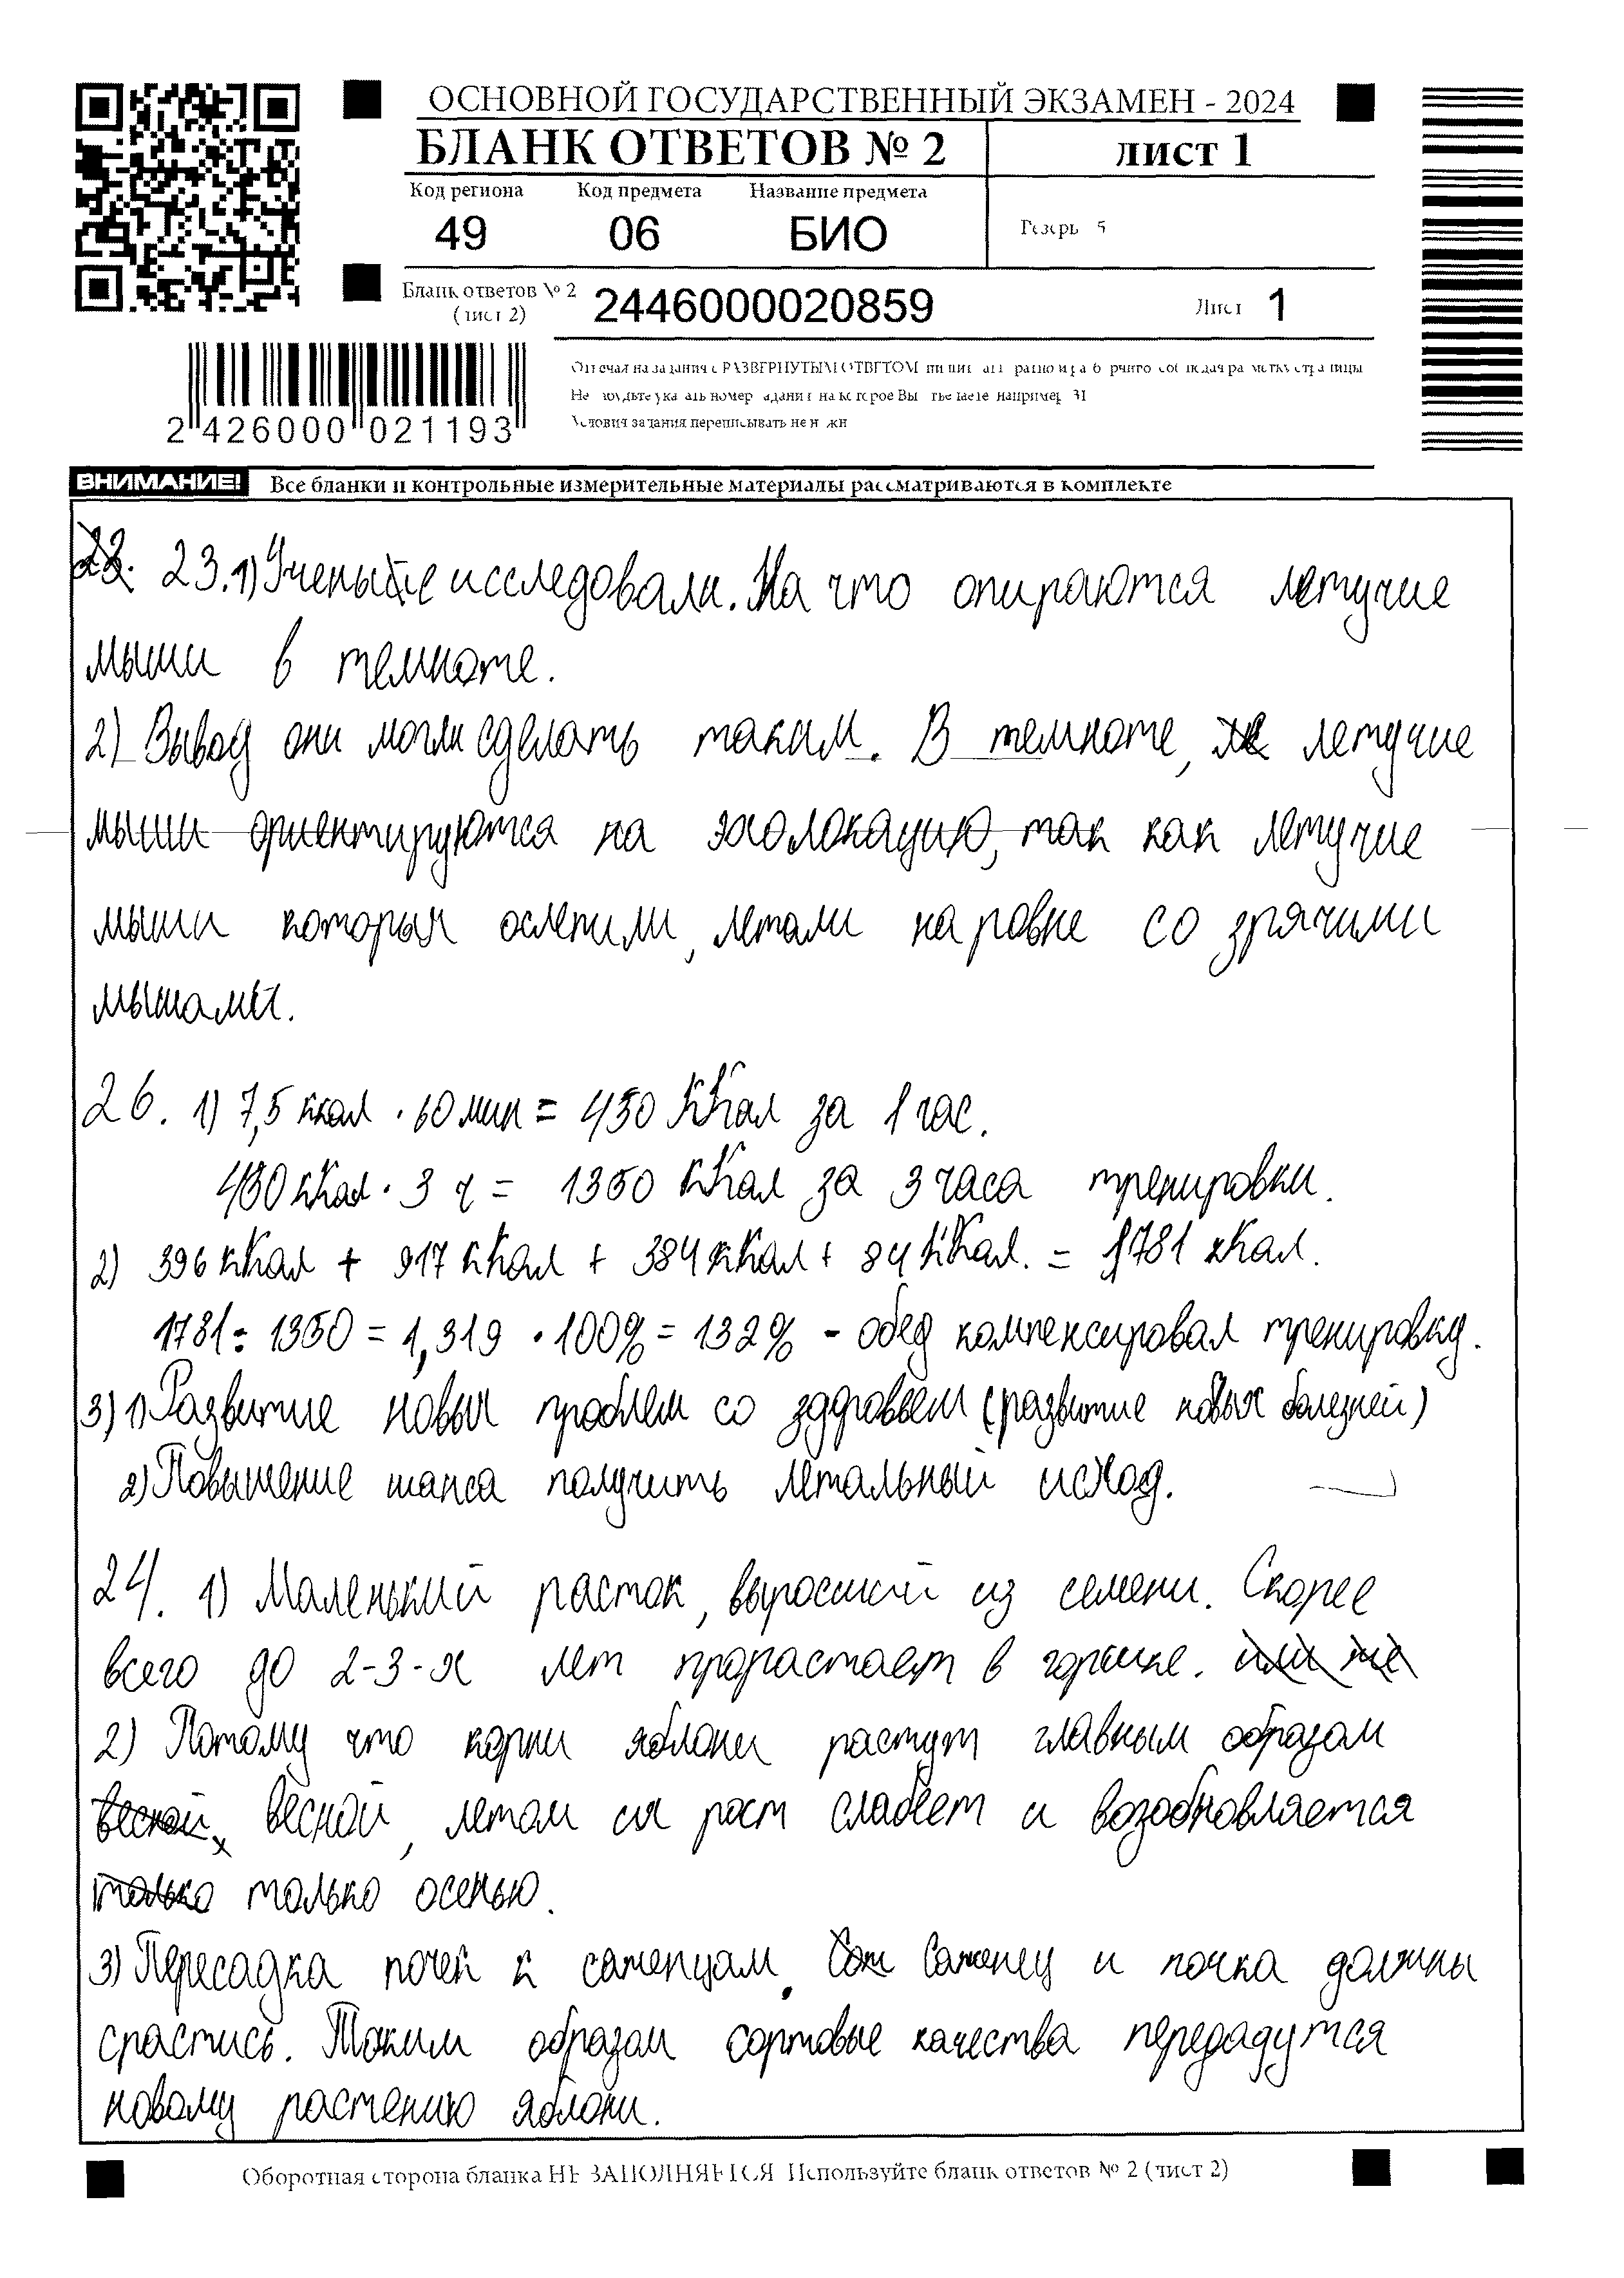 ОСНОВНОЙ ГОСУДАРСТВЕННЫЙ ЭКЗАМЕН - 2024
БЛАНК ОТВЕТОВ № 2 лист 1
Код региона Код предмета Название предмета
49 06 БИО
Резерв - 5
Бланк ответов № 2
(лист 2) 2446000020859 Лист 1
2 426000 021193
Отвечая на задания с РАЗВЕРНУТЫМ ОТВЕТОМ
Условия задания переписывать не нужно
ВНИМАНИЕ! Все бланки и контрольные измерительные материалы рассматриваются в комплекте
23. 1) Ученые исследовали. На что опираются летучие
мыши в темноте.
2) Вывод они могли сделать таким. В темноте, летучие
мыши ориентируются на эхолокацию, так как летучие
мыши которых ослепили, летали на ровне со зрячими
мышами.
26. 1) 7,5 ккал · 60 мин = 450 ККал за 1 час.
450 кКал · 3 ч = 1350 ККал за 3 часа тренировки.
2) 396 кКал + 917 кКал + 384 кКал + 84 кКал. = 1781 кКал.
1781 : 1350 = 1,319 · 100% = 132% - обед компенсировал тренировку.
3) 1) Развитие новых проблем со здоровьем (развитие новых болезней)
2) Повышение шанса получить летальный исход.
24. 1) Маленький росток, выросший из семени. Скорее
всего до 2-3-х лет прорастает в горшке.
2) Потому что корни яблони растут главным образом
весной, летом их рост слабеет и возобновляется
только осенью.
3) Пересадка почек к саженцам. Саженец и почка должны
срастись. Таким образом сортовые качества передадутся
новому растению яблони.
Оборотная сторона бланка НЕ ЗАПОЛНЯЕТСЯ. Используйте бланк ответов № 2 (лист 2)